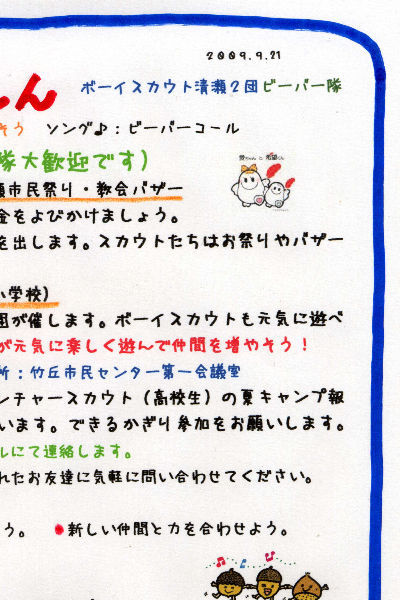 2009.9.21
しん
ボーイスカウト清瀬2団ビーバー隊
そう ソング♪：ビーバーコール
隊大歓迎です）
瀬市民祭り・教会バザー
愛ちゃんと希望くん
金をよびかけましょう。
を出します。スカウトたちはお祭りやバザー
小学校）
団が催します。ボーイスカウトも元気に遊べ
が元気に楽しく遊んで仲間を増やそう！
所：竹丘市民センター第一会議室
ンチャースカウト（高校生）の夏キャンプ報
います。できるかぎり参加をお願いします。
ルにて連絡します。
れたお友達に気軽に問い合わせてください。
う。 ●新しい仲間と力を合わせよう。